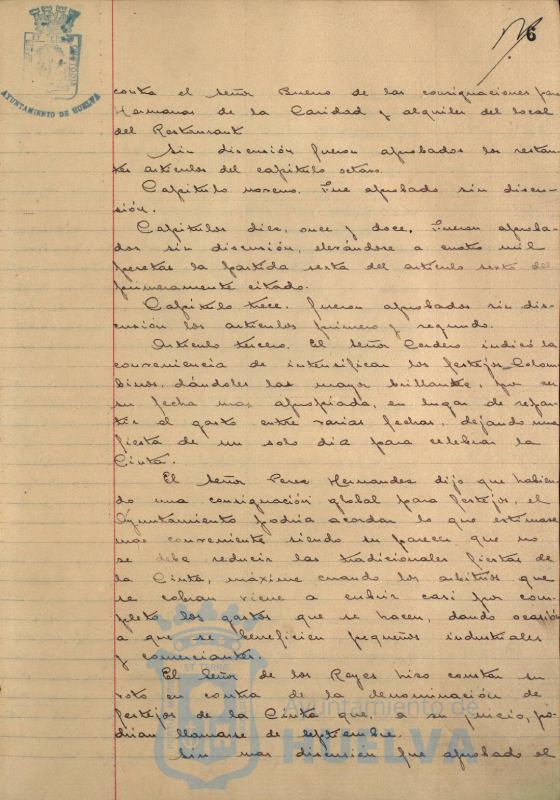 6
AYUNTAMIENTO DE HUELVA
contra el señor Bueno de las consignaciones para
Hermanas de la Caridad y alquiler del local
del Restaurant
Sin discusión fueron aprobados los restan-
tes artículos del capítulo octavo.
Capítulo noveno. Fue aprobado sin discu-
sión.
Capítulos diez, once y doce. Fueron aproba-
dos sin discusión, elevándose a cuatro mil
pesetas la partida sexta del artículo sexto del
primeramente citado.
Capítulo trece. fueron aprobados sin dis-
cusión los artículos primero y segundo.
Artículo tercero. El Señor Cordero indicó la
conveniencia de intensificar los festejos Colom-
binos, dándoles la mayor brillantez, por ser
su fecha mas apropiada, en lugar de repar-
tir el gasto entre varias fechas, dejando una
fiesta de un solo dia para celebrar la
Cinta.
El Señor Perez Hernandez dijo que habien-
do una consignación global para festejos, el
Ayuntamiento podria acordar lo que estimara
mas conveniente siendo su parecer que no
se debe reducir las tradicionales fiestas de
la Cinta, máxime cuando los arbitrios que
se cobran viene a cubrir casi por com-
pleto los gastos que se hacen, dando ocasión
a que se beneficien pequeños industriales
y comerciantes.
El Señor de los Reyes hizo constar su
voto en contra de la denominación de
festejos de la Cinta que, a su juicio, po-
drian llamarse de septiembre.
Sin mas discusión fue aprobado el
Ayuntamiento de
HUELVA